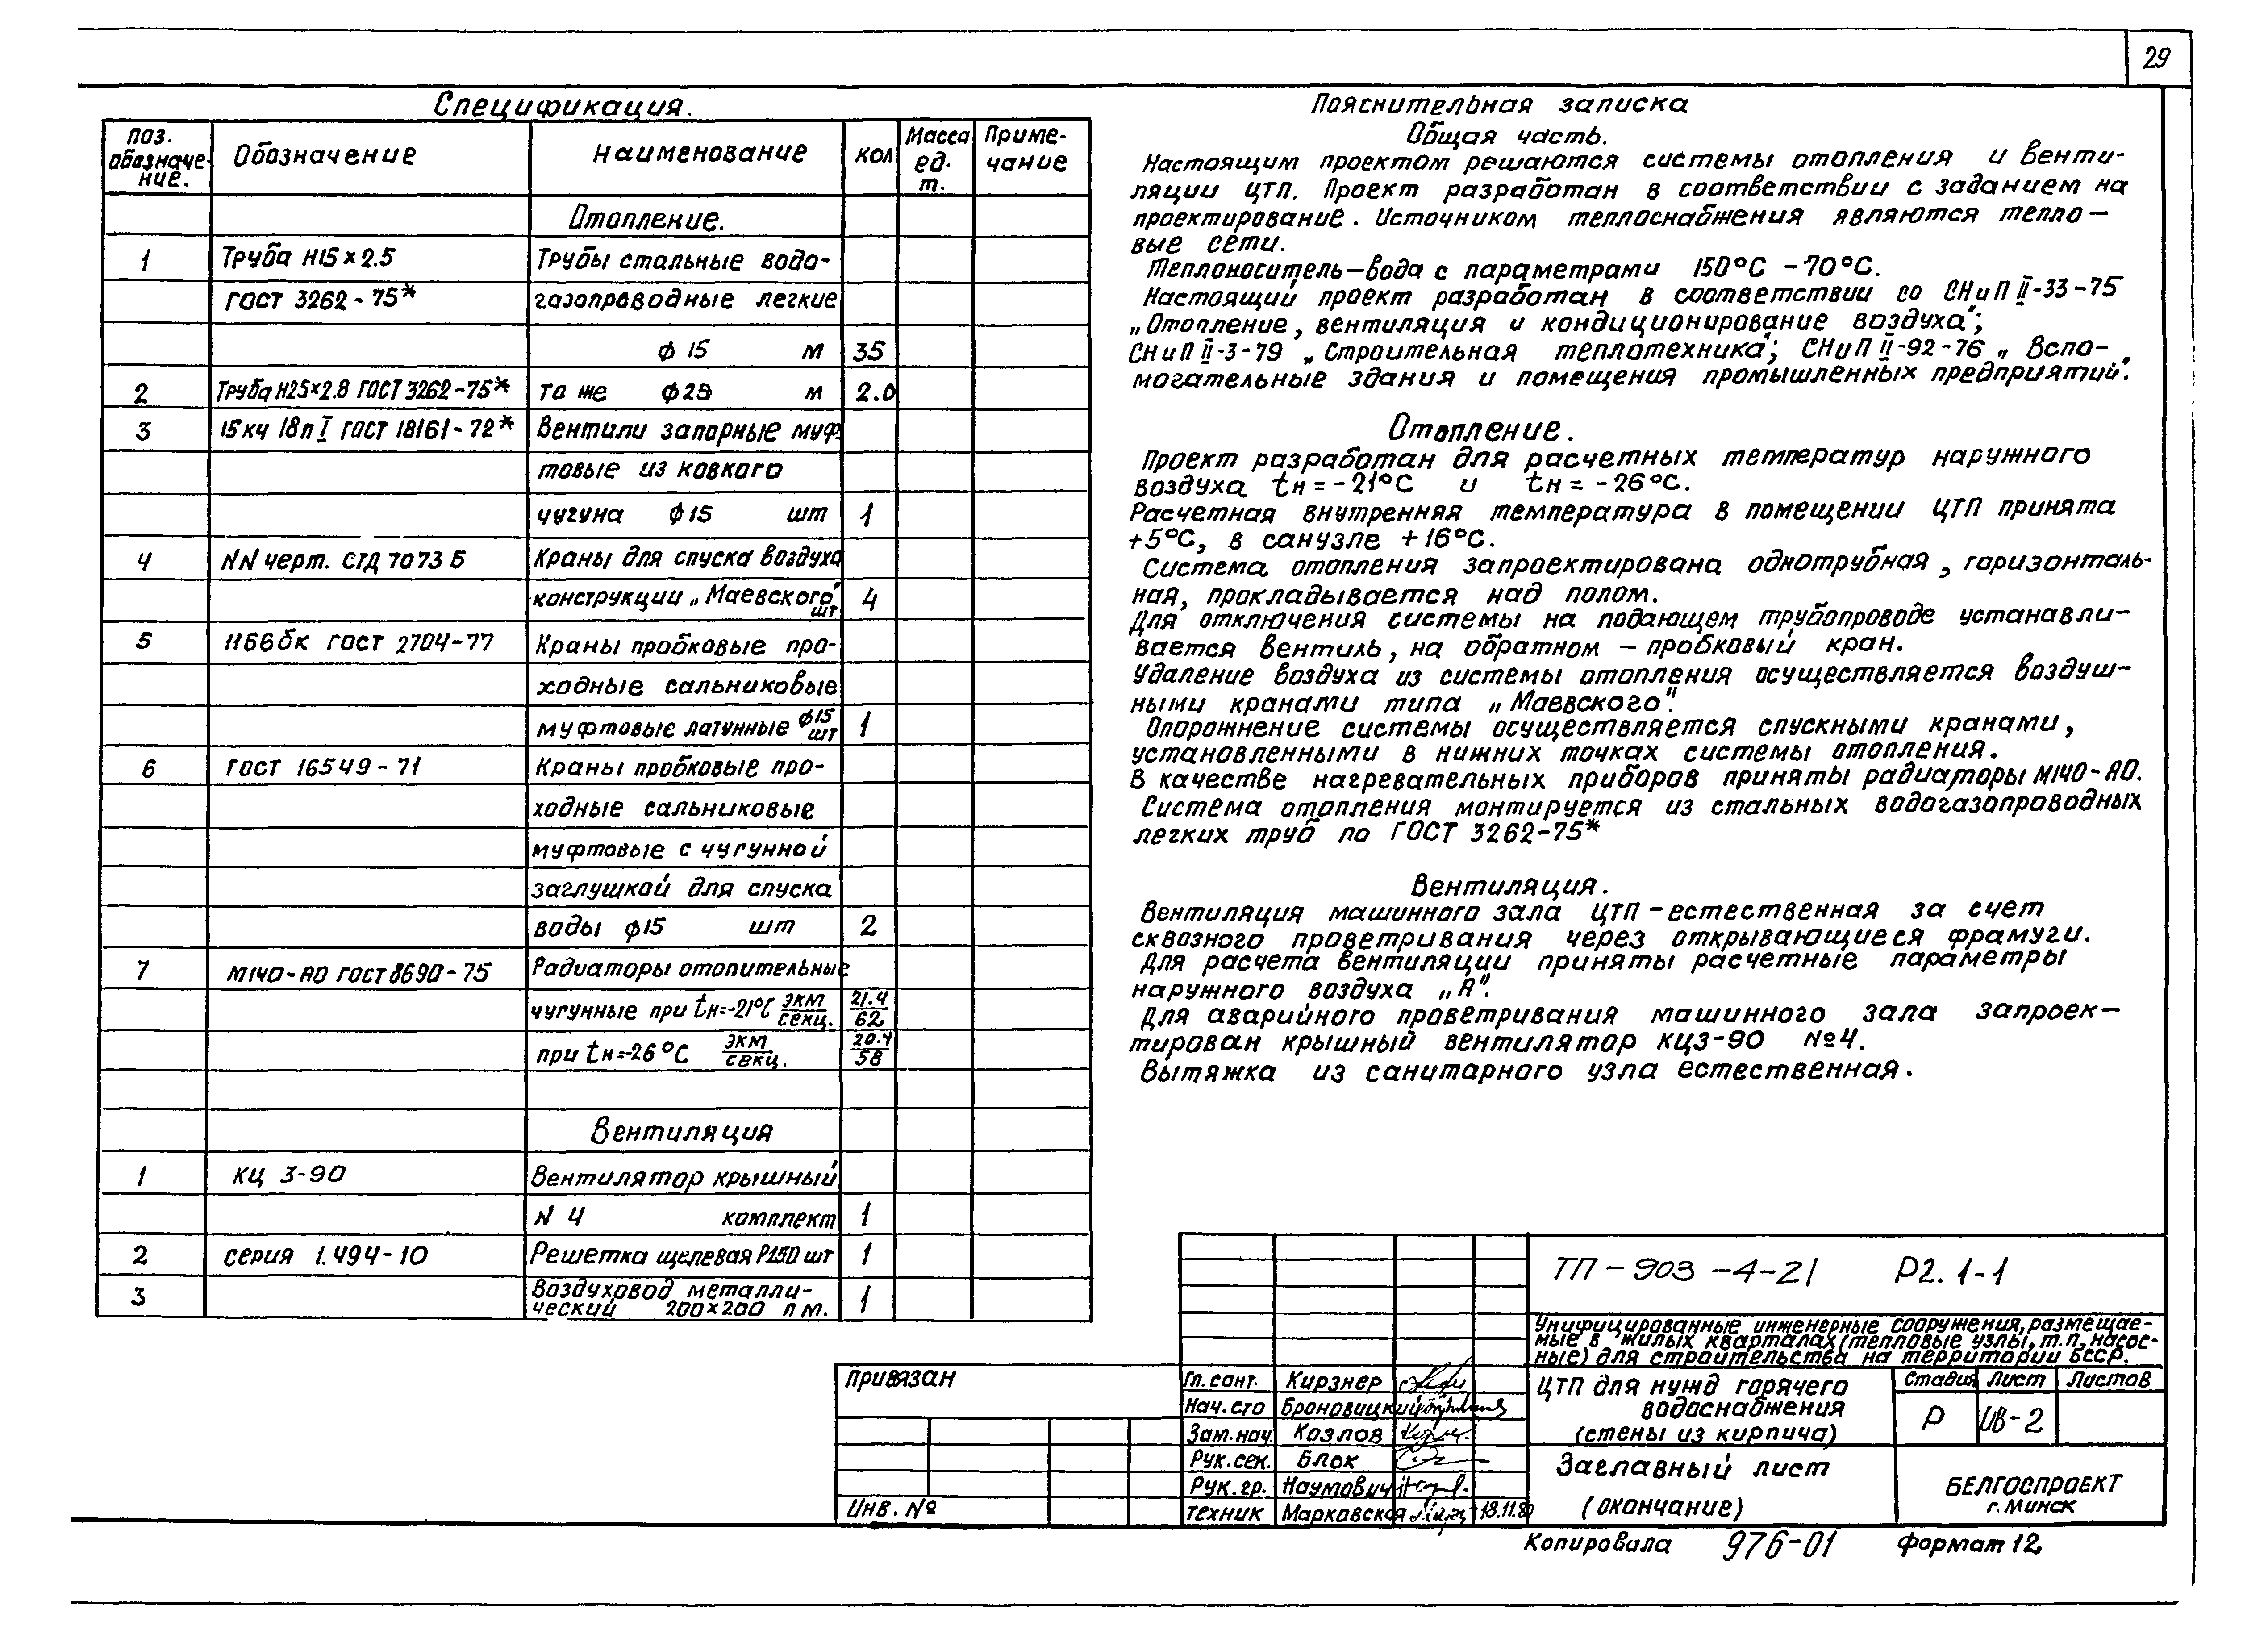 29
Спецификация.
поз. обозначе- ние. Обозначение Наименование кол Масса ед. т. Приме- чание
Отопление.
1 Труба Н15×2.5 Трубы стальные водо-
ГОСТ 3262-75* газопроводные легкие
ф 15 м 35
2 Труба Н25×2.8 ГОСТ 3262-75* то же ф25 м 2.0
3 15кч 18п I ГОСТ 18161-72* Вентили запорные муф-
товые из ковкого
чугуна ф15 шт 1
4 NN черт. СТД 7073 Б Краны для спуска воздуха
конструкции „Маевского" шт 4
5 11б6бк ГОСТ 2704-77 Краны пробковые про-
ходные сальниковые
муфтовые латунные ф15 шт 1
6 ГОСТ 16549-71 Краны пробковые про-
ходные сальниковые
муфтовые с чугунной
заглушкой для спуска
воды ф15 шт 2
7 М140-АО ГОСТ 8690-75 Радиаторы отопительные
чугунные при tн=-21°С экм/секц. 21.4/62
при tн=-26°С экм/секц. 20.4/58
Вентиляция
1 КЦ 3-90 Вентилятор крышный
N 4 комплект 1
2 серия 1.494-10 Решетка щелевая Р150 шт 1
3 Воздуховод металли-
ческий 200×200 п.м. 1
Пояснительная записка
Общая часть.
Настоящим проектом решаются системы отопления и венти-
ляции ЦТП. Проект разработан в соответствии с заданием на
проектирование. Источником теплоснабжения являются тепло-
вые сети.
Теплоноситель-вода с параметрами 150°С -70°С.
Настоящий проект разработан в соответствии со СНиП II-33-75
„Отопление, вентиляция и кондиционирование воздуха";
СНиП II-3-79 „Строительная теплотехника"; СНиП II-92-76 „Вспо-
могательные здания и помещения промышленных предприятий".
Отопление.
Проект разработан для расчетных температур наружного
воздуха tн=-21°С и tн=-26°С.
Расчетная внутренняя температура в помещении ЦТП принята
+5°С, в санузле +16°С.
Система отопления запроектирована однотрубная, горизонталь-
ная, прокладывается над полом.
Для отключения системы на подающем трубопроводе устанавли-
вается вентиль, на обратном - пробковый кран.
Удаление воздуха из системы отопления осуществляется воздуш-
ными кранами типа „Маевского".
Опорожнение системы осуществляется спускными кранами,
установленными в нижних точках системы отопления.
В качестве нагревательных приборов приняты радиаторы М140-АО.
Система отопления монтируется из стальных водогазопроводных
легких труб по ГОСТ 3262-75*
Вентиляция.
Вентиляция машинного зала ЦТП-естественная за счет
сквозного проветривания через открывающиеся фрамуги.
Для расчета вентиляции приняты расчетные параметры
наружного воздуха „А".
Для аварийного проветривания машинного зала запроек-
тирован крышный вентилятор КЦ3-90 №4.
Вытяжка из санитарного узла естественная.
ТП-903-4-21 Р2.1-1
Унифицированные инженерные сооружения, размещае-
мые в жилых кварталах (тепловые узлы, т.п, насос-
ные) для строительства на территории БССР.
привязан
Инв. №
Гл. сант. Кирзнер
Нач. сто Броновицкий
Зам. нач. Козлов
Рук. сек. Блок
Рук. гр. Наумович
Техник Марковская 18.11.80
ЦТП для нужд горячего
водоснабжения
(стены из кирпича)
Стадия Лист Листов
Р ОВ-2
Заглавный лист
(окончание)
БЕЛГОСПРОЕКТ
г. Минск
Копировала 976-01 Формат 12